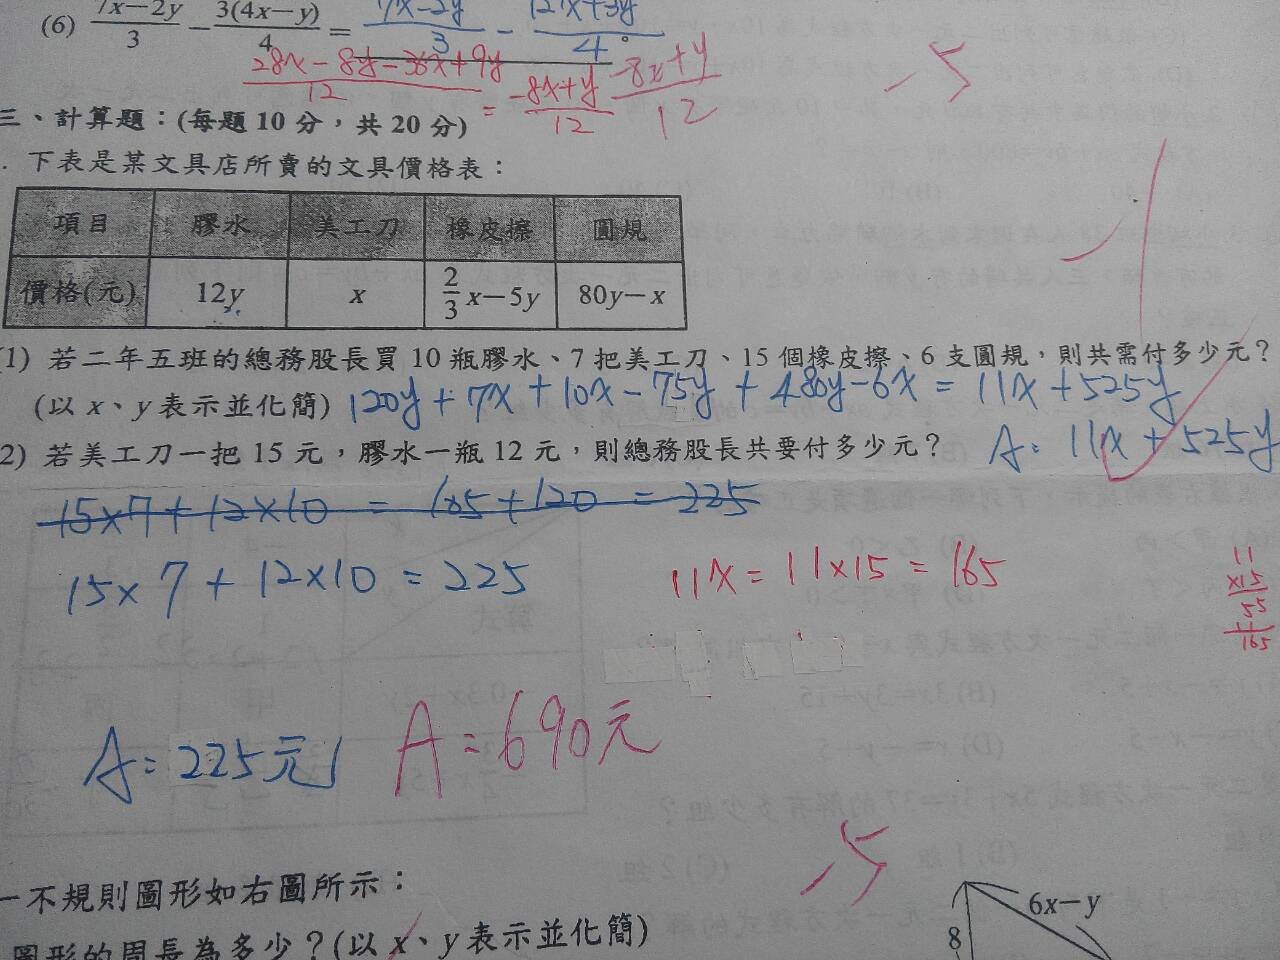 (6) 7x-2y/3 - 3(4x-y)/4 = 7x-2y/3 - 12x+3y/4 。
28x-8y-36x+9y/12 = -8x+y/12 -8x+y/12
-5
三、計算題：(每題 10 分，共 20 分)
. 下表是某文具店所賣的文具價格表：
項目 膠水 美工刀 橡皮擦 圓規
價格(元) 12y x 2/3x-5y 80y-x
(1) 若二年五班的總務股長買 10 瓶膠水、7 把美工刀、15 個橡皮擦、6 支圓規，則共需付多少元？
(以 x、y 表示並化簡) 120y+7x+10x-75y+480y-6x=11x+525y
2) 若美工刀一把 15 元，膠水一瓶 12 元，則總務股長共要付多少元？ A: 11x+525y
15×7+12×10 = 105+120 = 225
15×7+12×10=225 11x=11×15=165
11
×15
55
11
165
A: 225元 A=690元
-5
一不規則圖形如右圖所示：
圖形的周長為多少？(以 x、y 表示並化簡)
6x-y
8